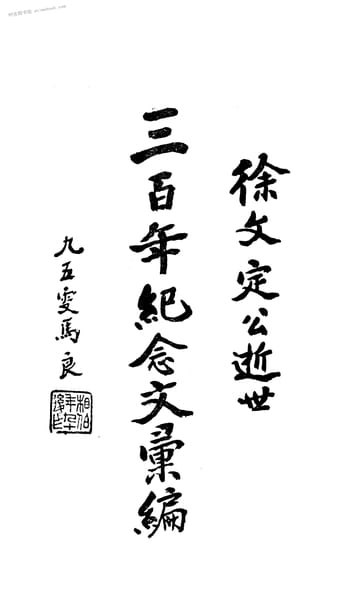 徐文定公逝世
三百年紀念文彙編
九五叟馬良
相伯